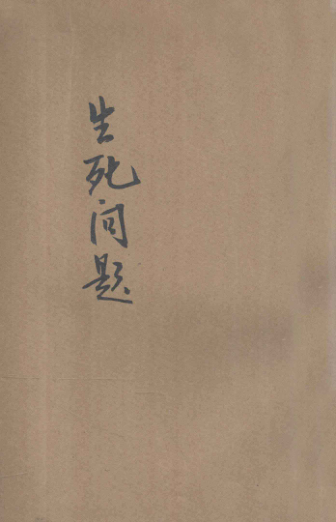 生死问题